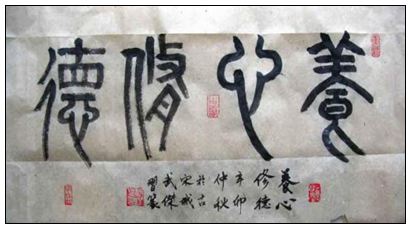 養心修德
養心
修德
辛卯
仲秋
於古
宋城
武傑
習篆